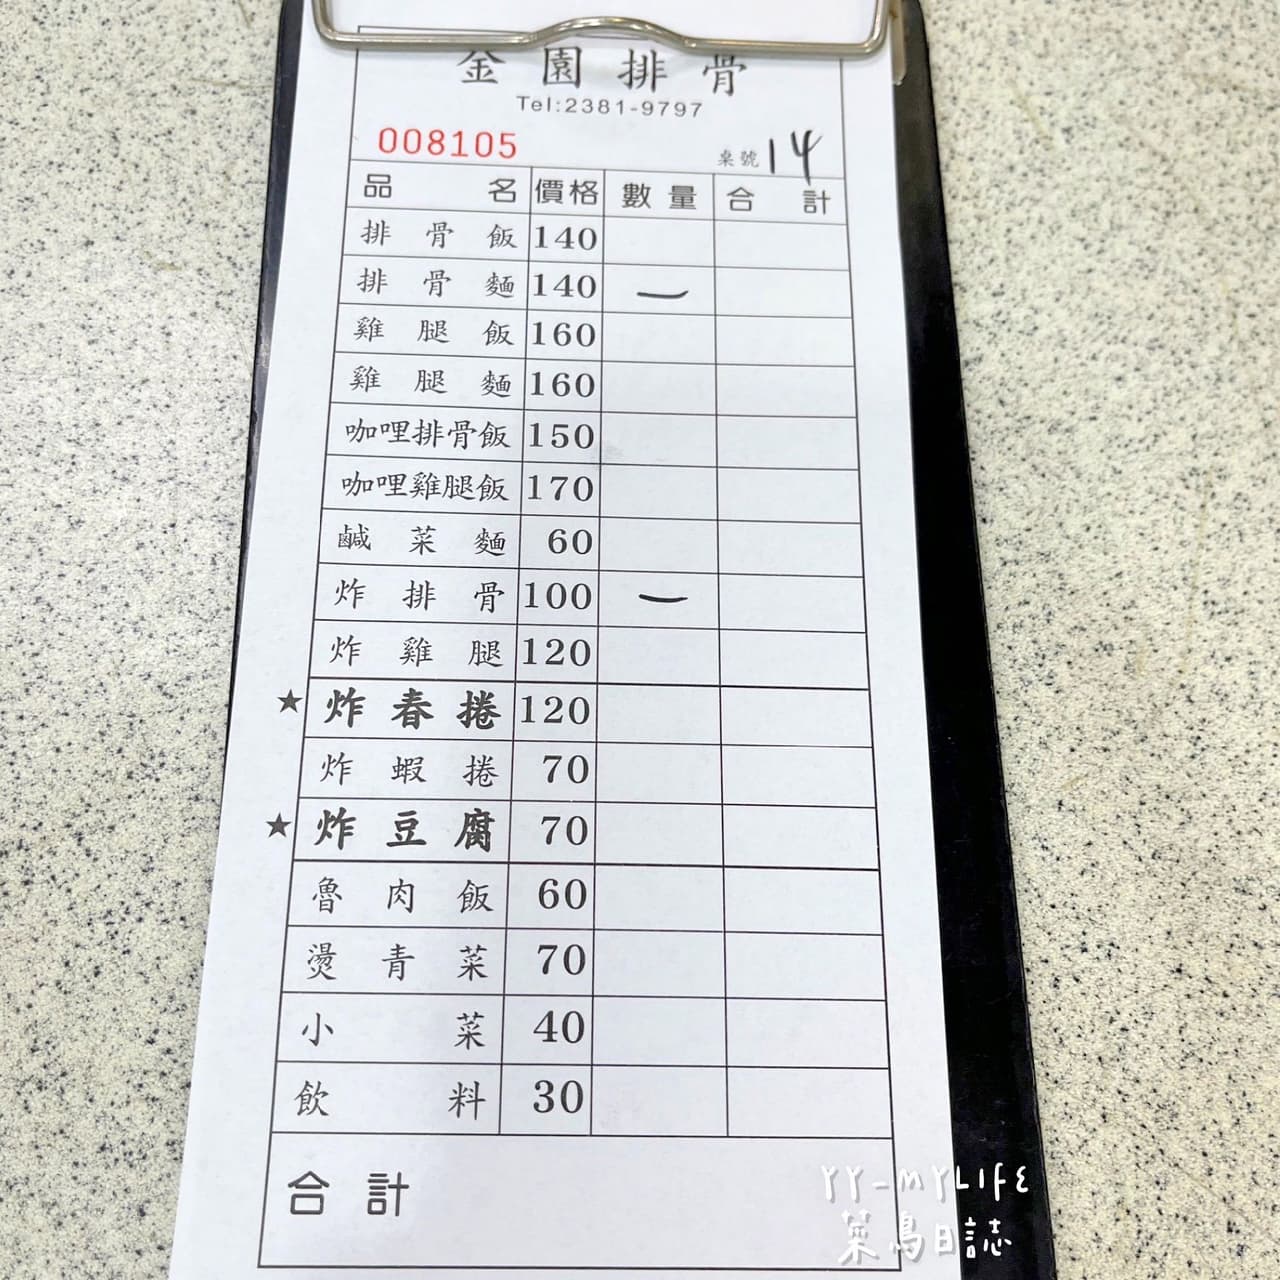 金園排骨
Tel:2381-9797
008105 桌號 14
品名 價格 數量 合計
排骨飯 140
排骨麵 140 一
雞腿飯 160
雞腿麵 160
咖哩排骨飯 150
咖哩雞腿飯 170
鹹菜麵 60
炸排骨 100 一
炸雞腿 120
★ 炸春捲 120
炸蝦捲 70
★ 炸豆腐 70
魯肉飯 60
燙青菜 70
小菜 40
飲料 30
合計
YY-MYLIFE
菜鳥日誌